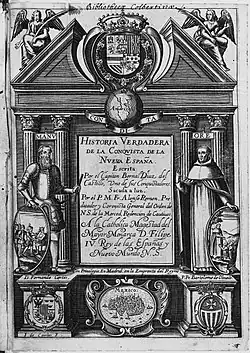 Bibliotheca Colbertina
CON
TA
DE
MANV
ORE
HISTORIA VERDADERA
DE LA CONQVISTA DE LA
NVEVA ESPAÑA.
Escrita
Por el Capitan Bernal Diaz, del
Castillo, Vno de sus Conquistadores.
Sacala a luz,
Por el P. M. F. Alonso Remon, Pre
dicador y Coronista General del Orden de
N. S. de la Merced, Redencion de Cautiuos.
A la Catholica Magestad del
Mayor Monarca D. Filipe
IV. Rey de las Españas y
Nuevo Mundo N. S.
D. Fernando Cortes
Con Privilegio En Madrid, en la Emprenta del Reyno
MEXICO